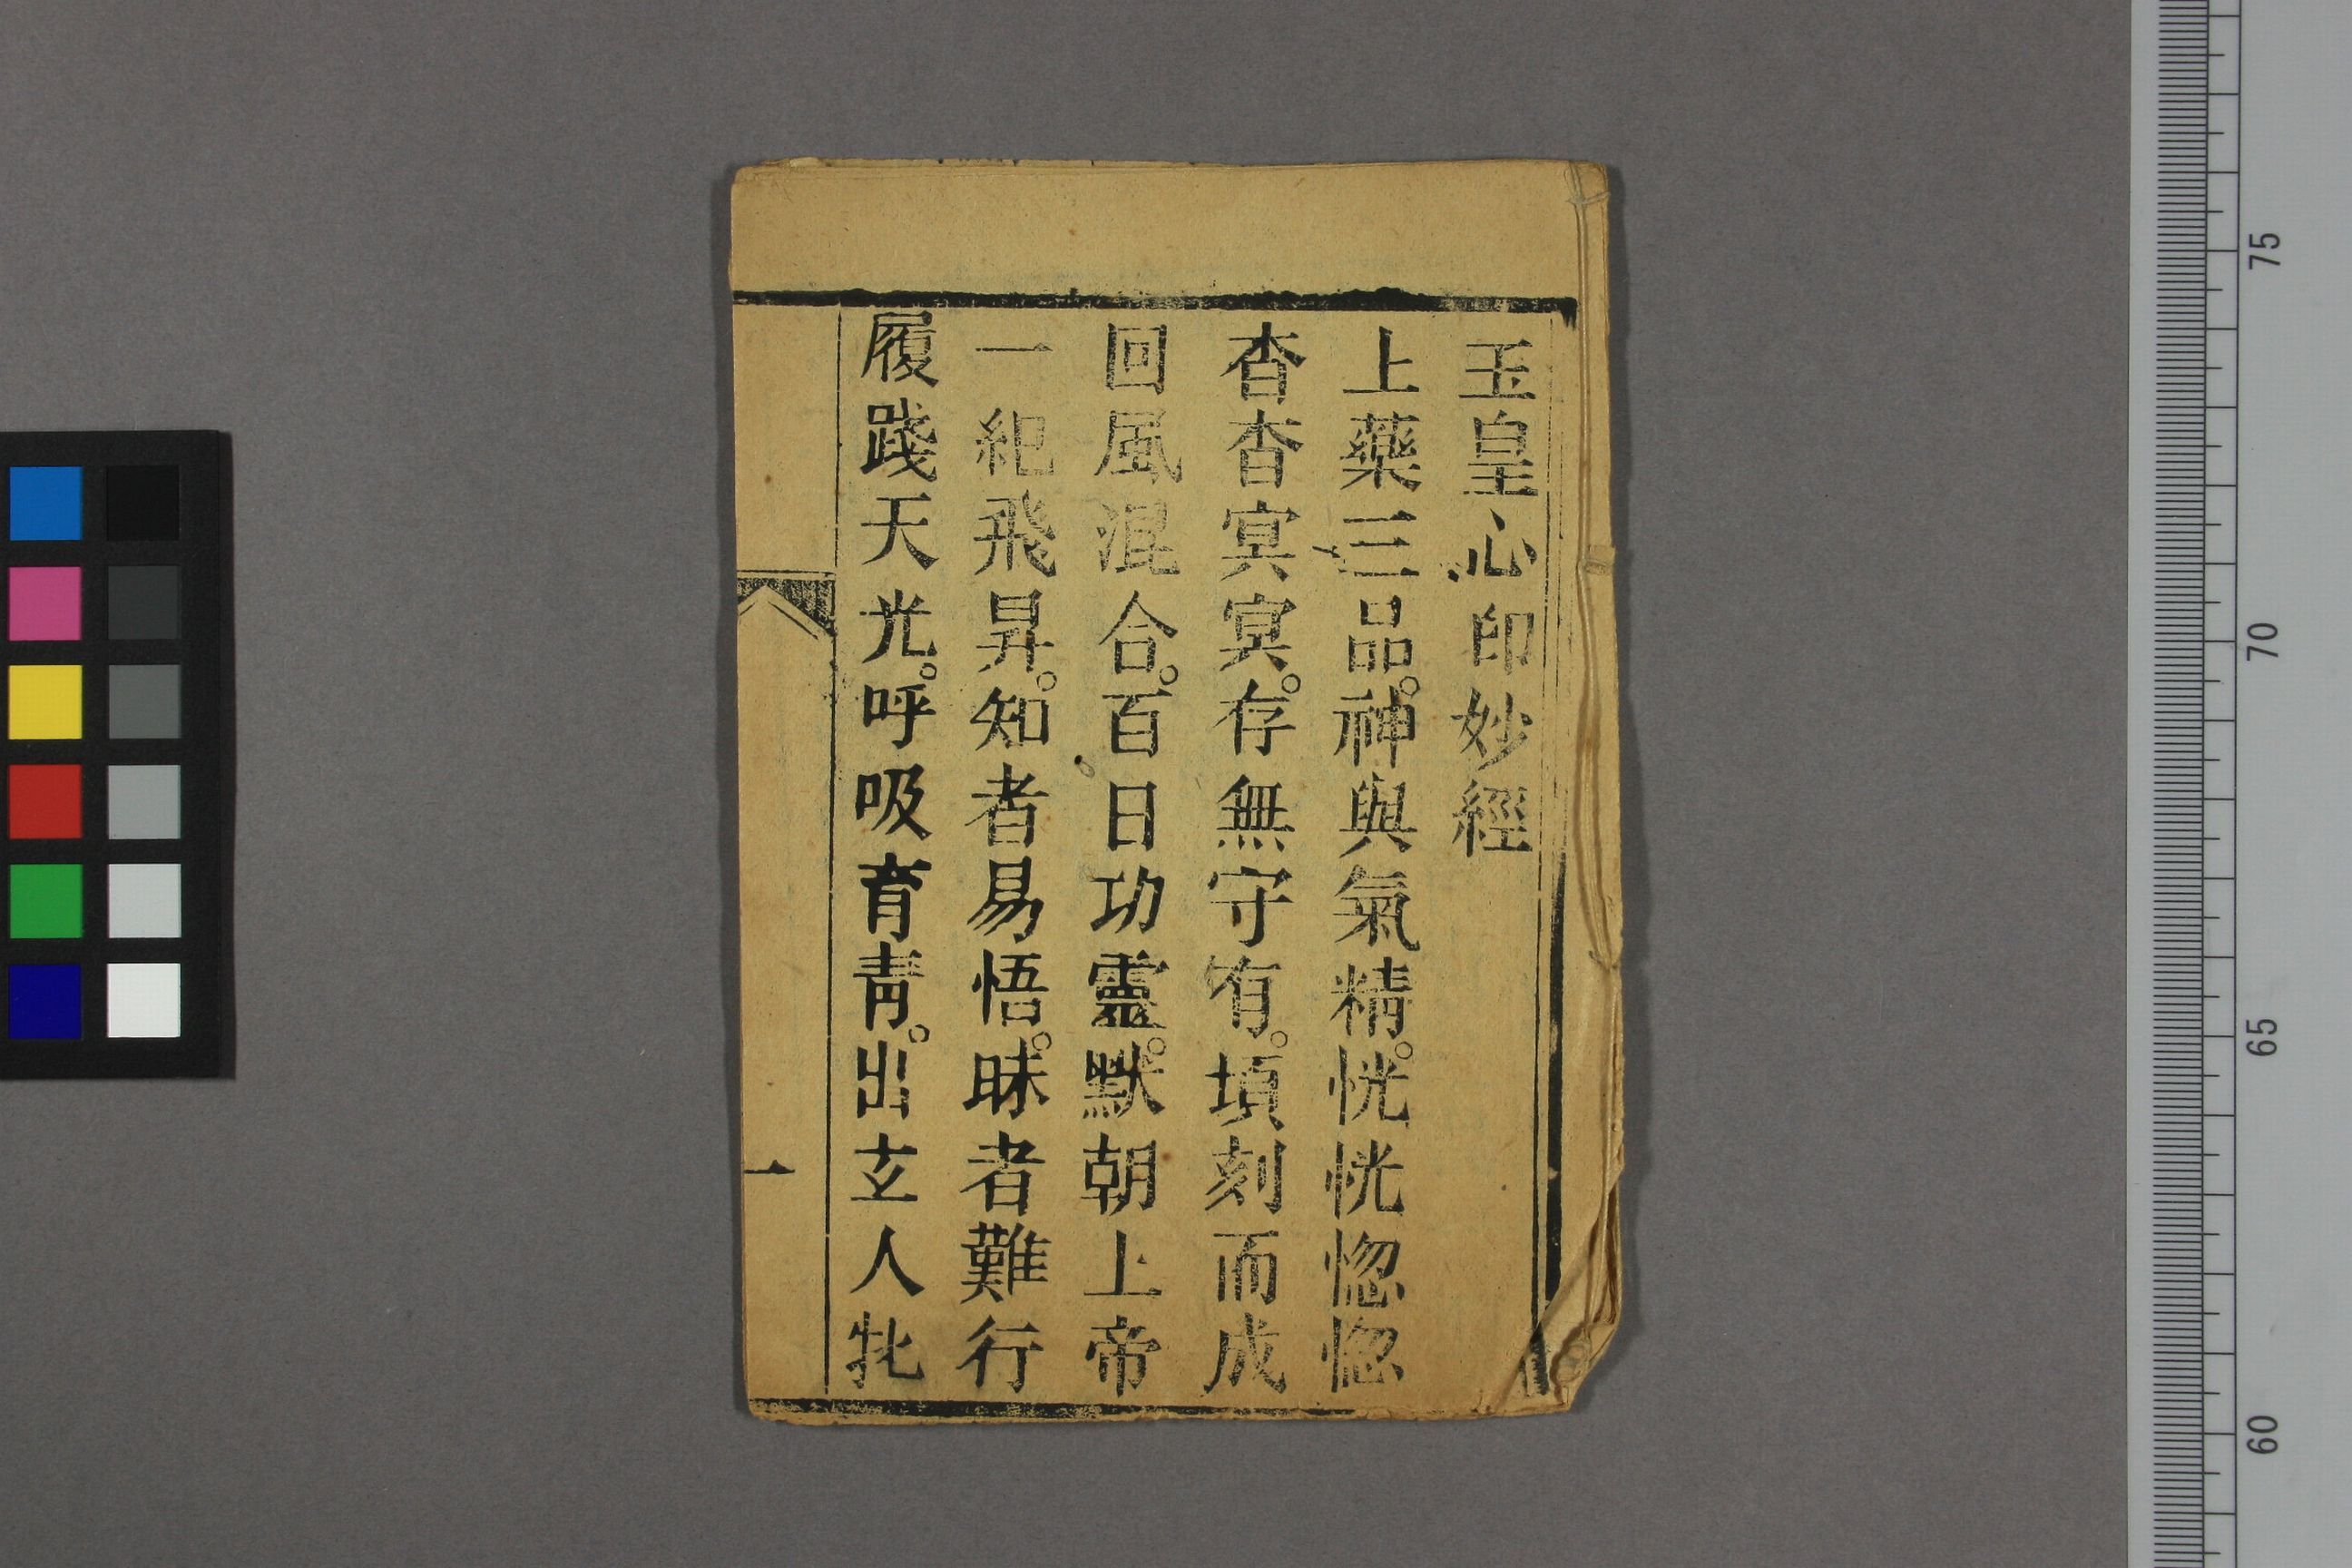 玉皇心印妙經
上藥三品。神與氣精。恍恍惚惚
杳杳㝠㝠。存無守有。頃刻而成
回風混合。百日功靈。默朝上帝
一紀飛昇。知者易悟。昧者難行
履踐天光。呼吸育青。出玄人牝
一
75
70
65
60